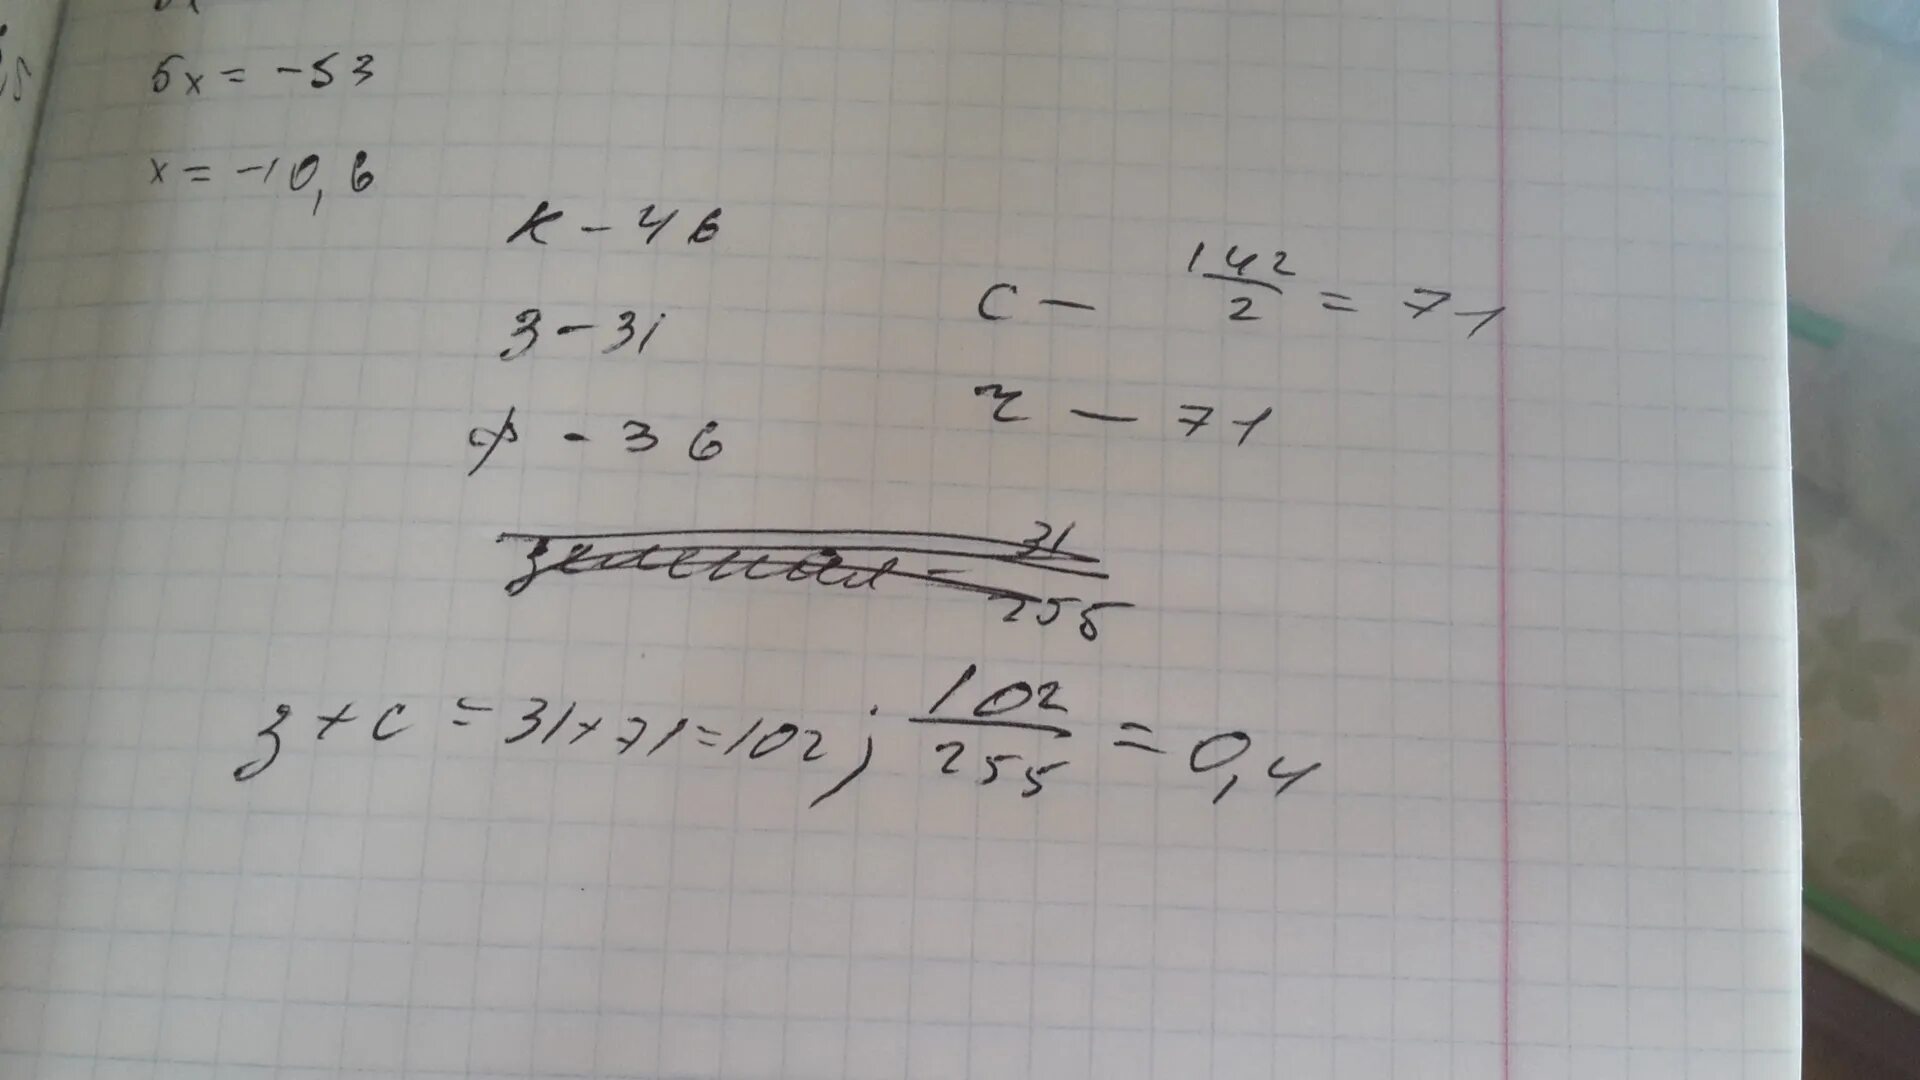 5x = -53
x = -10,6
К - 46
З - 31
ф - 36
С - 142/2 = 71
Ч - 71
зеленая - 31/255
З + С = 31 + 71 = 102 ; 102/255 = 0,4